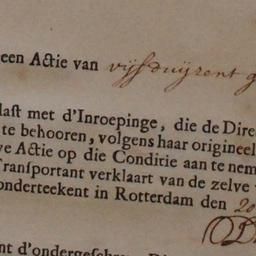 een Actie van vijfduijzent g
last met d'Inroepinge, die de Dire
te behooren, volgens haar origineel
ve Actie op die Conditie aan te nem
Transportant verklaart van de zelve
onderteekent in Rotterdam den 20
nt d'ondergeschre